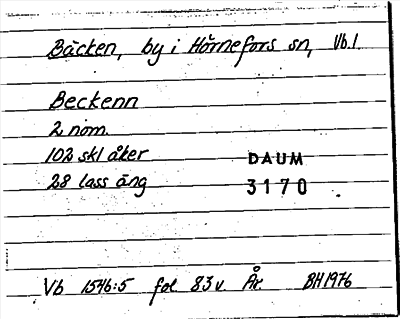 Bäcken, by i Hörnefors sn, Vb.l.
Beckenn
2 nom.
102 skl åker
DAUM
28 lass äng
3170
Vb 1546:5 fol 83v. År BH1976